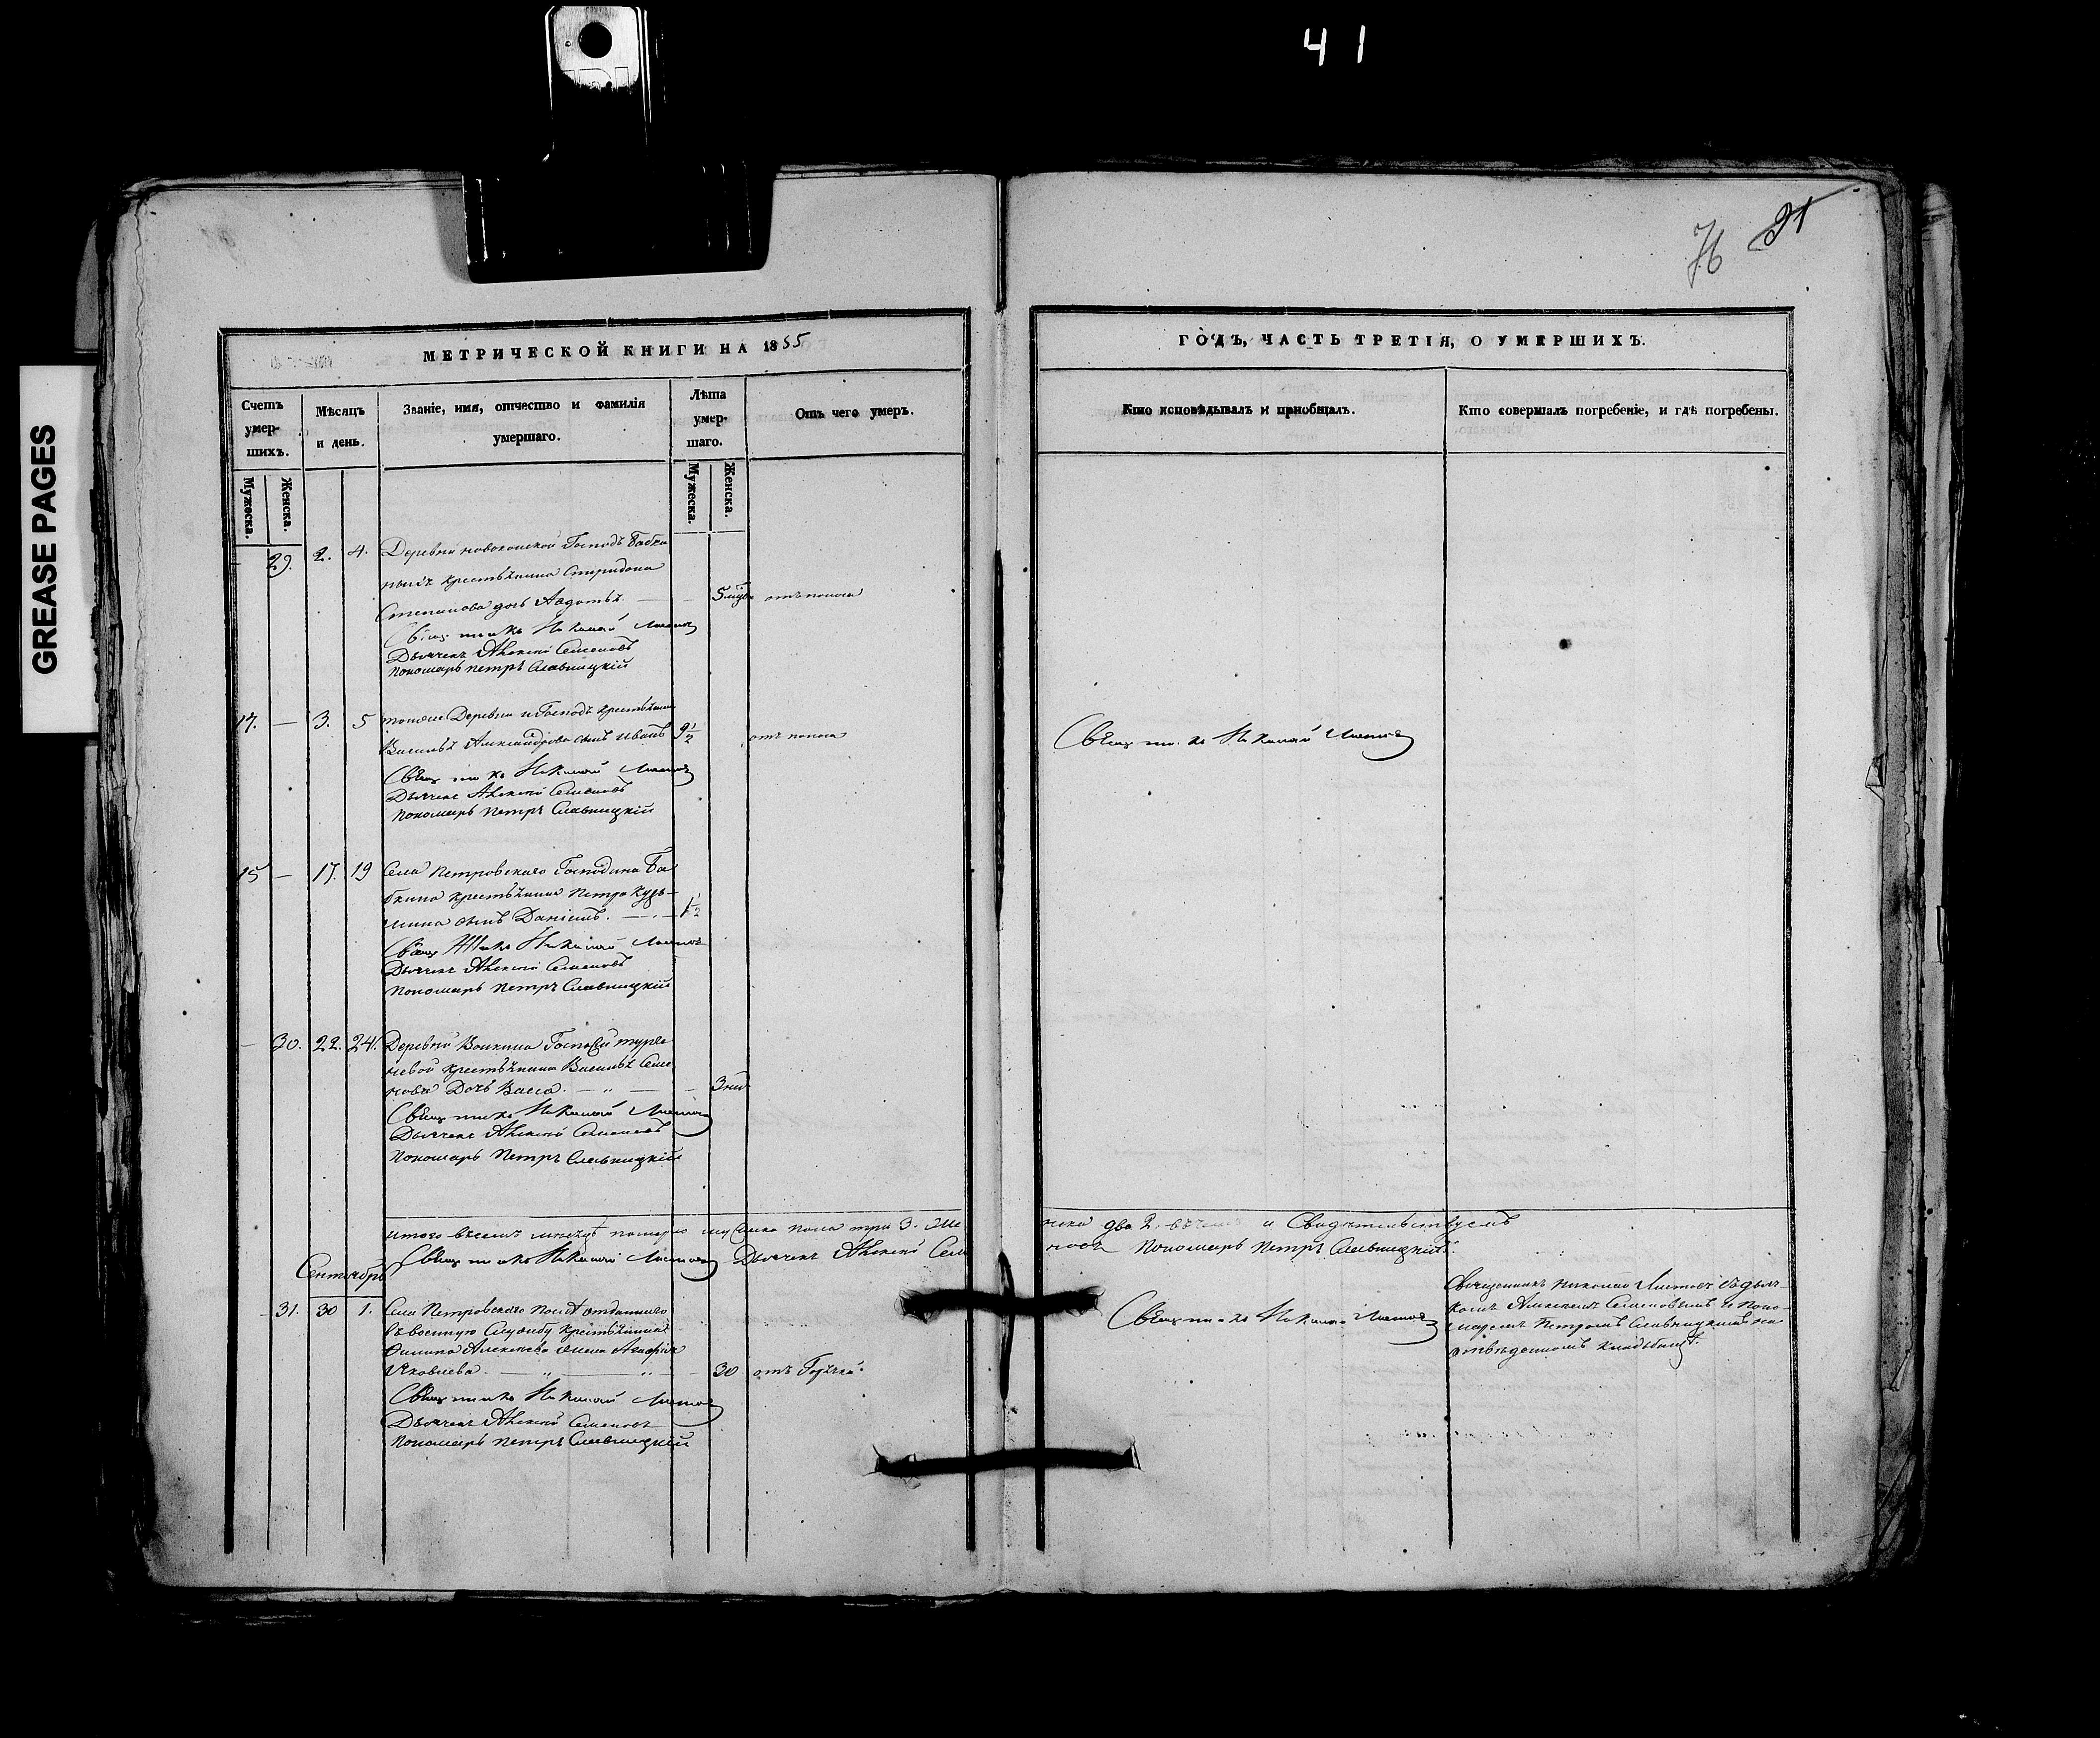 41
GREASE PAGES
76 91
МЕТРИЧЕСКОЙ КНИГИ НА 1855
ГОДЪ, ЧАСТЬ ТРЕТІЯ, О УМЕРШИХЪ.
Счетъ умер-шихъ.
Мѣсяцъ и день.
Званіе, имя, отчество и фамилія умершаго.
Лѣта умер-шаго.
Отъ чего умеръ.
Кто исповѣдывалъ и пріобщалъ.
Кто совершалъ погребеніе, и гдѣ погребены.
Мужеска. Женска.
Мужеска. Женска.
29. 2. 4. Деревни Господъ Бабки
ныхъ крестьянина Спиридона
Степанова дочь Авдотья. 5 отъ поноса
Николай
Дьячекъ Алексей Семеновъ
Пономарь Петръ Славницкій
17. — 3. 5 тоиже Деревни и Господъ крестьянина
Василья Александрова сынъ Иванъ 9½ отъ поноса
Николай
Дьячекъ Алексей Семеновъ
Пономарь Петръ Славницкій
15 — 17. 19 Села Петровскаго Господина Ба
бкина крестьянина Петра Кузь-
мина сынъ Даніилъ. 1½
Николай
Дьячекъ Алексей Семеновъ
Пономарь Петръ Славницкій
— 30. 22. 24. Деревни Госпожи турге
невой крестьянина Василья Семе
нова Дочь Васса. 3 нед
Николай
Дьячекъ Алексей Семеновъ
Пономарь Петръ Славницкій
итого въ померло мужеска пола три 3. же
нска два 2. и Свидетельствуемъ
Николай Дьячекъ Алексей Семе
новъ Пономарь Петръ Славницкій
Сентябрь
31. 30 1. Села Петровскаго отданнаго
въ военную Службу крестьянина
Филипа Алексеева жена Агафия
Яковлева. 30 отъ Горячки.
Николай
Дьячекъ Алексей Семеновъ
Пономарь Петръ Славницкій
Николай
Николай
Священникъ Николай съ дьяч-
комъ Алексеемъ Семеновымъ и поно-
маремъ Петромъ Славницкимъ на
отведенномъ кладбищѣ.